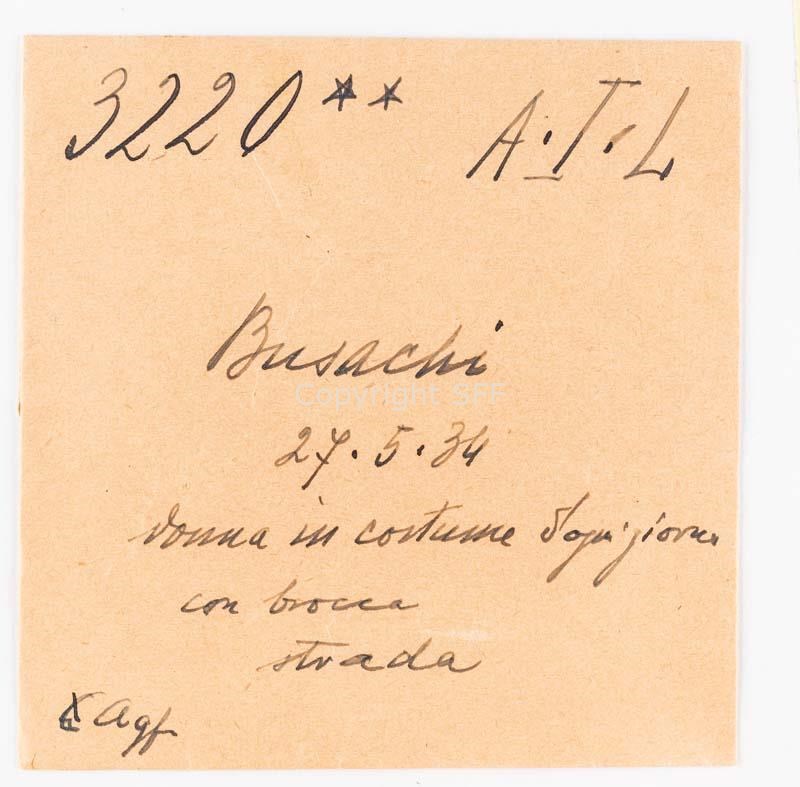 3220 ** A.I.L
Busachi
Copyright SFF
27.5.34
donna in costume d'ogni giorno
con brocca
strada
Agf